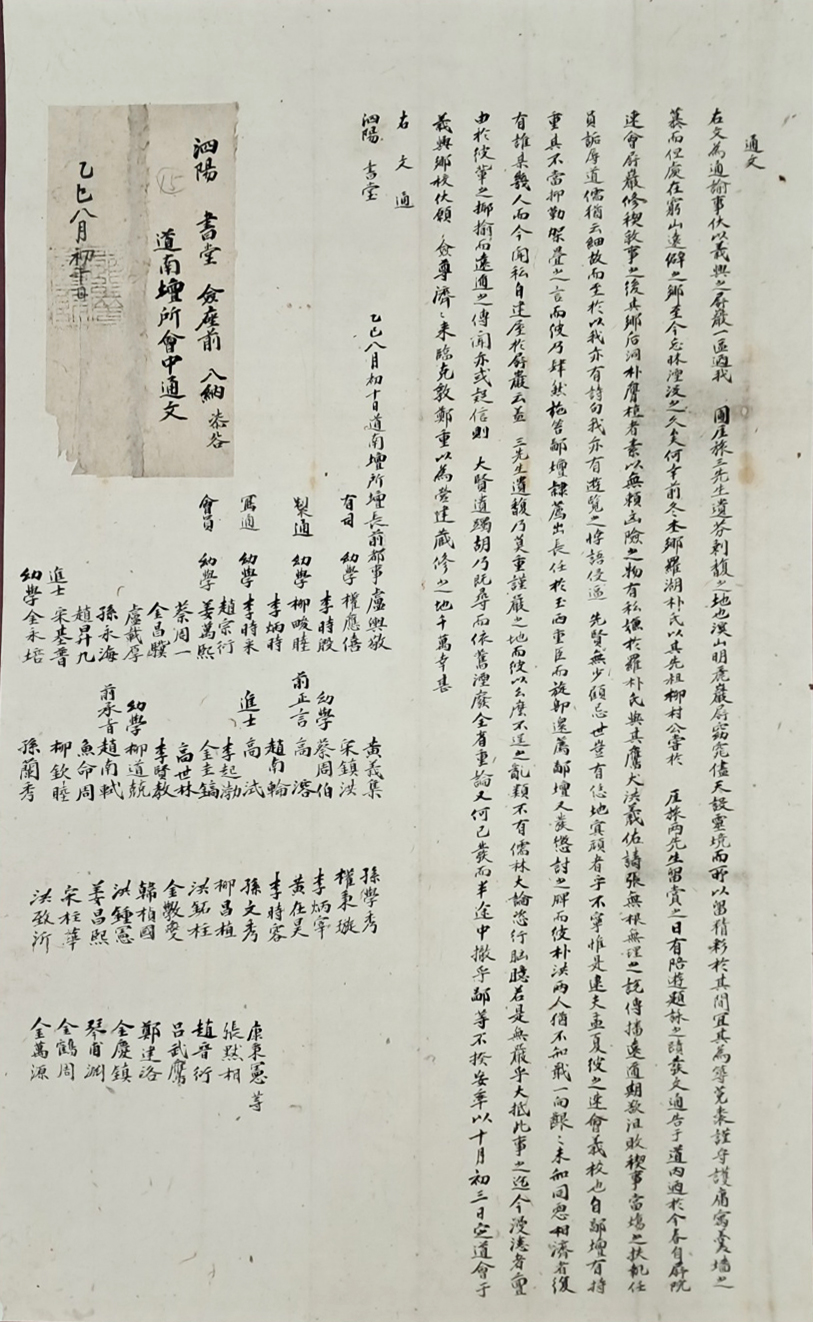 通文
右文為通諭事伏以義興之屛巖一區過我 國厓旅三先生遺芬剩馥之地也溪山明麗巖屛窈窕儘天設靈境而所以留精彩於其間宜其為芻蕘樵謹守護庸寓羹墻之
慕而但處在窮山遠僻之鄕至今忘昧湮沒之久矣何幸前冬本鄕羅湖朴氏以其先祖柳村公嘗於 厓旅兩先生留賞之日有陪遊題詠之蹟發文通告于道內廼於今春自屛院
建會屛巖修稧敦事之後其鄕居洞朴膺植者素以無賴凶險之物有私嫌於羅朴氏與其鷹犬洪羲佑譸張無根無理之說傳播遠邇期欲沮敗稧事當場之扶執任
員詬辱道儒猶云細故而至於以我亦有詩句我亦有遊覽之悖語侵逼 先賢無少顧忌世豈有恁地冥頑者乎不寧惟是逮夫孟夏從之建會義校也自鄙壇有持
重其不當抑勒架疊之言而彼乃肆然拖笞鄙壇隷薦出長任於玉西重臣而旋卽還薦鄙壇又發懲討之牌而彼朴洪兩人猶不知戢一向齦〻未知同惡相濟者復
有誰某幾人而今聞私自建屋於屛巖云盖 三先生遺馥乃莫重謹嚴之地而彼以幺麽不逞之亂類不有儒林大論恣行胸臆若是無嚴乎大抵此事之迄今漫漶者亶
由於彼輩之揶揄而遠邇之傳聞亦或起信則 大賢遺躅胡乃旣尋而依舊湮廢全省重論又何已發而半途中撤乎鄙等不揆妄率以十月初三日定道會于
義興鄕校伏願 僉尊濟〻來臨克敦鄭重以為營建藏修之地千萬幸甚
右文通
泗陽 書堂
乙巳八月初十日道南壇所壇長前都事盧興敬
有司 幼學 權應僖
李時殷
製通 幼學 柳畯睦
李炳時
寫通 幼學 李時采
趙宗衍
會員 幼學 姜萬熙
蔡周一
金昌驥
盧載厚
孫永海
趙昇九
進士 宋基普
幼學 金永培
黃義集
宋鎭洪
幼學 蔡周伯
前正言 高溶
趙南輪
進士 高拭
李起渤
金圭鎬
高世林
李賢敎
幼學 柳道兢
趙南軾
前承旨 魚命周
柳欽睦
孫蘭秀
孫學秀
權秉璇
李炳宰
黃在昊
李時容
孫文秀
柳昌植
洪鉐柱
金斅燮
韓柏國
洪鍾憲
姜昌熙
宋柱華
洪孜沂
康秉憲 等
張默相
趙晋衍
呂武膺
鄭建洛
金慶鎭
琴甫淵
金鶴周
金萬源
泗陽 書堂 僉座前 入納
恭答
15
道南壇所會中通文
乙巳八月初十日